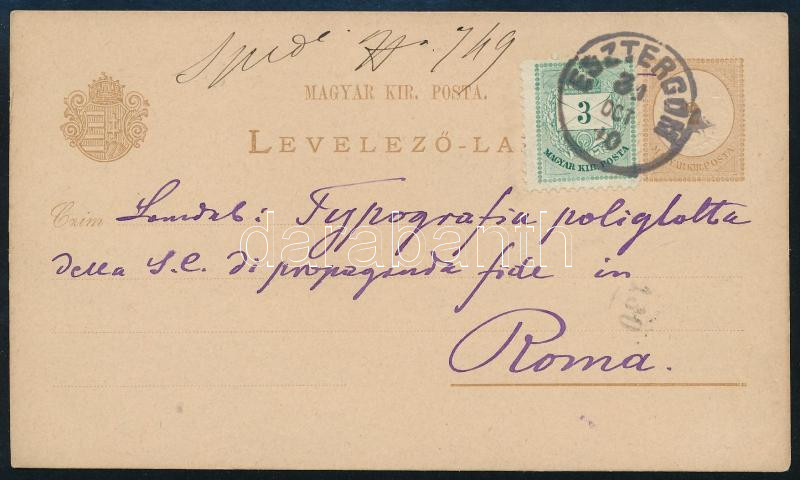 MAGYAR KIR. POSTA.
LEVELEZŐ-LA
3
MAGYAR KIR. POSTA
ESZTERGOM
OCT
MAGYAR KIR. POSTA
Czim Typografia poliglotta
della S. C. di propaganda fide in
Roma.
darabanth